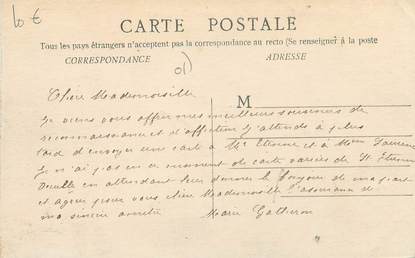 10 €
CARTE POSTALE
Tous les pays étrangers n'acceptent pas la correspondance au recto (Se renseigner à la poste
CORRESPONDANCE
ADRESSE
01)
M
Chère Mademoiselle
Je viens vous offrir mes meilleurs souvenirs de
reconnaissance et d'affection J'attends à plus
tard d'envoyer une carte à Mr Etienne et à Mme
Je n'ai pas en ce moment de carte variées de St Etienne
en attendant leur donner le bonjour de ma part
et agréer pour vous chère Mademoiselle l'assurance de
ma sincère amitié
Marie